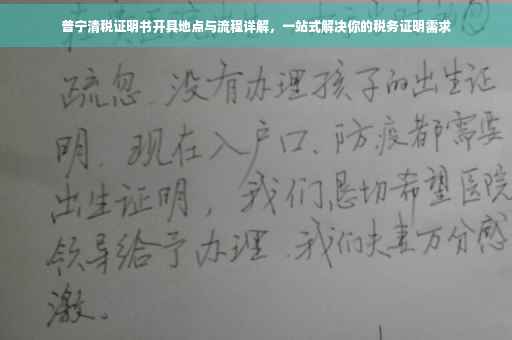 普宁清税证明书开具地点与流程详解，一站式解决你的税务证明需求
疏忽、没有办理孩子的出生证
明、现在入户口、防疫都需要
出生证明，我们恳切希望医院
领导给予办理、我们夫妻万分感
激。